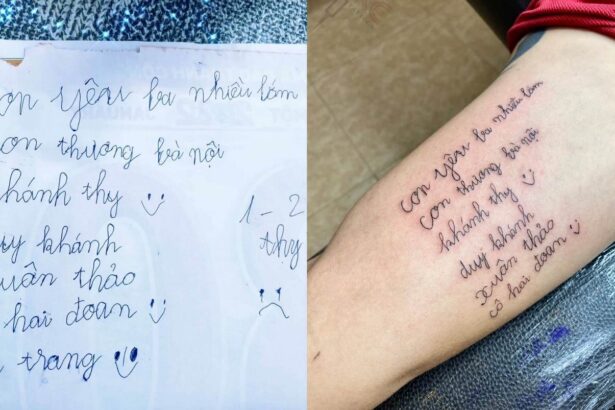 con yêu ba nhiều lắm
con thương bà nội
khánh thy
duy khánh
xuân thảo
hai đoan
trang
1 - 2
thy
con yêu ba nhiều lắm
con thương bà nội
khánh thy
duy khánh
xuân thảo
cô hai đoan